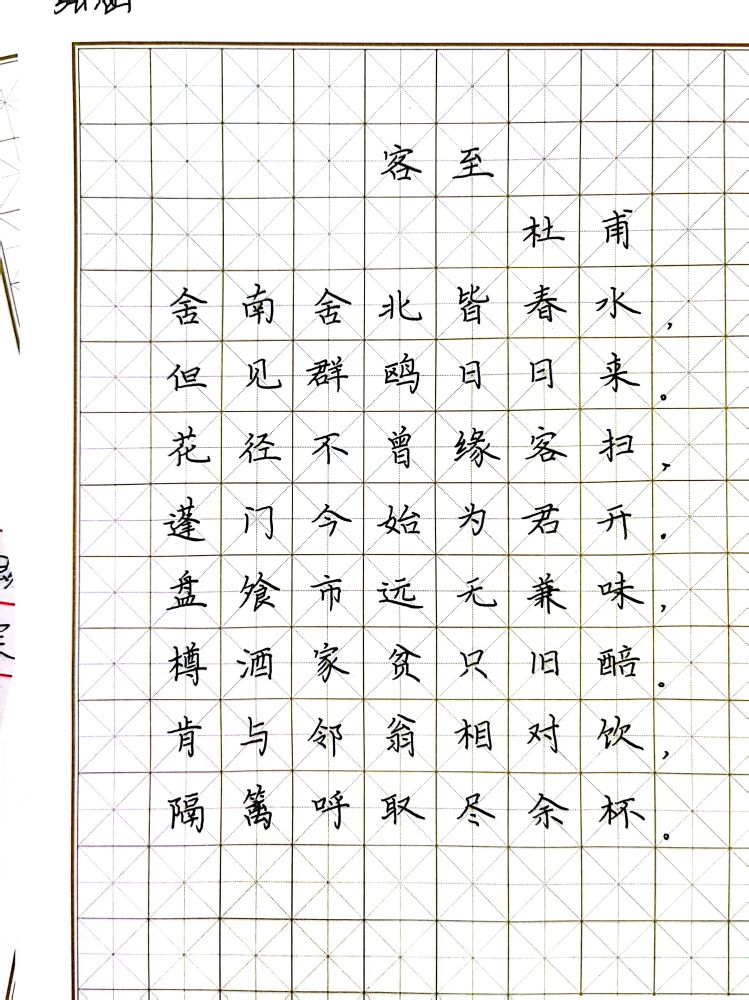 客至
杜甫
舍南舍北皆春水，
但见群鸥日日来。
花径不曾缘客扫，
蓬门今始为君开。
盘飧市远无兼味，
樽酒家贫只旧醅。
肯与邻翁相对饮，
隔篱呼取尽余杯。